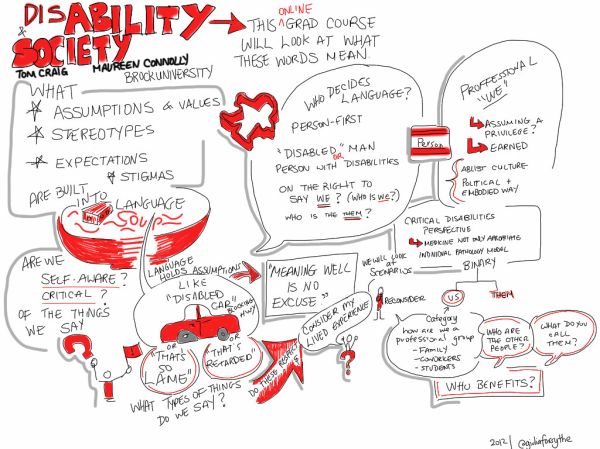 DISABILITY
& SOCIETY
TOM CRAIG MAUREEN CONNOLLY
BROCK UNIVERSITY
THIS ONLINE GRAD COURSE
WILL LOOK AT WHAT
THESE WORDS MEAN.
WHAT
ASSUMPTIONS & VALUES
STEREOTYPES
EXPECTATIONS
& STIGMAS
ARE BUILT
INTO LANGUAGE
SOUP
ARE WE
SELF-AWARE?
CRITICAL?
OF THE THINGS
WE SAY
LANGUAGE
HOLDS ASSUMPTIONS
LIKE
"DISABLED
CAR"
BLOCKING
HWY
OR
"THAT'S
SO
LAME"
OR
"THAT'S
RETARDED"
WHAT TYPES OF THINGS
DO WE SAY?
DO THESE RESPECT
"MEANING WELL
IS NO
EXCUSE"
CONSIDER MY
LIVED EXPERIENCE
WHO DECIDES
LANGUAGE?
PERSON-FIRST
"DISABLED" MAN
OR
PERSON WITH DISABILITIES
ON THE RIGHT TO
SAY WE? (WHO IS WE?)
WHO IS THE THEM?
Person
PROFFESSIONAL
"WE"
ASSUMING A
PRIVILEGE?
EARNED
ABLIST CULTURE
POLITICAL +
EMBODIED WAY
CRITICAL DISABILITIES
PERSPECTIVE
MEDICINE NOT ONLY APPROPRIATE
INDIVIDUAL PATHOLOGY MODAL
BINARY
WE WILL LOOK
AT
SCENARIOS
RECONSIDER
US
THEM
Category
how are we a
professional group
- FAMILY
- COWORKERS
- STUDENTS
WHO ARE
THE OTHER
PEOPLE?
WHAT DO YOU
CALL
THEM?
WHO BENEFITS?
2012 | @giuliaforsythe